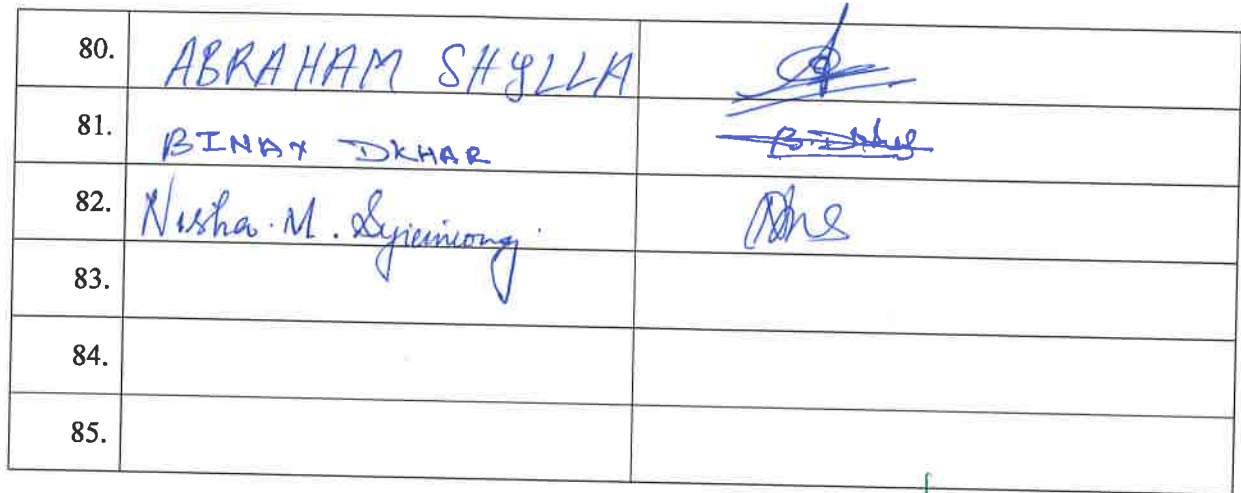 80. ABRAHAM SHYLLA
81. BINAX DKHAR B. Dkhar
82. Nisha. M.
83.
84.
85.